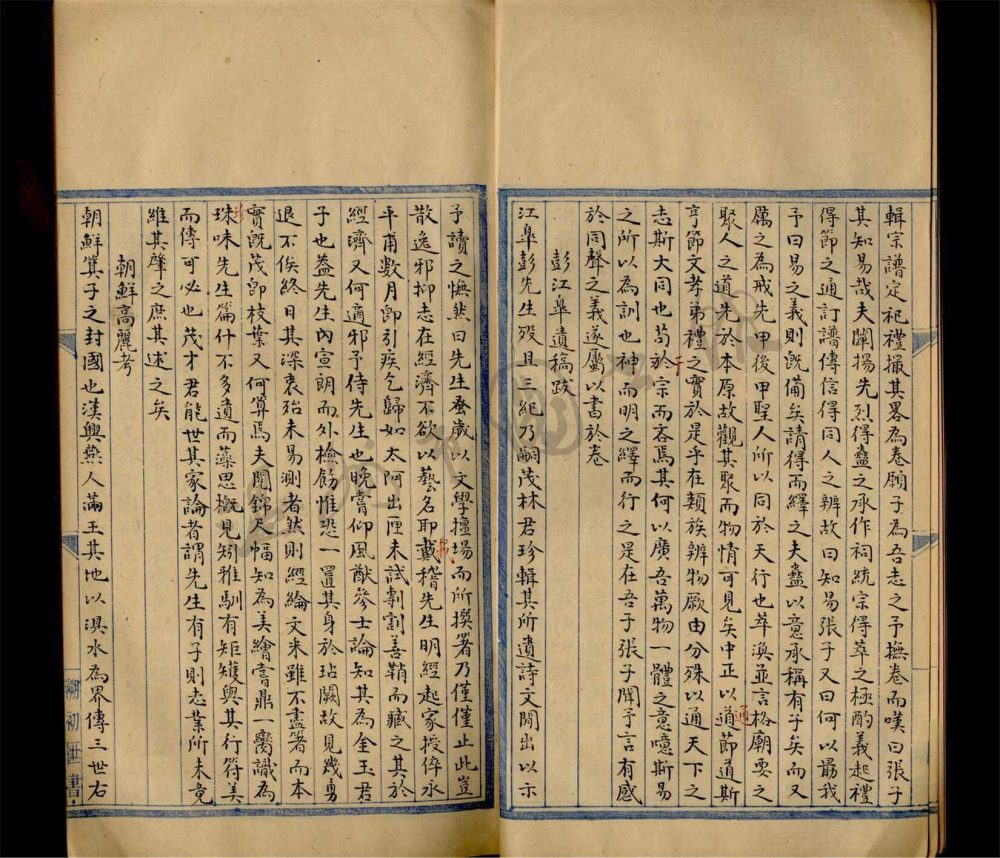 輯宗譜定祀禮撮其畧為卷願子為吾志之予撫卷而嘆曰張子
其知易哉夫闡揚先烈得蠱之承作祠統宗得萃之極酌義起禮
得節之通訂譜傳信得同人之辨故曰知易張子又曰何以勗我
予曰易之義則既備矣請得而繹之夫蠱以意承稱有子矣而又
厲之為戒先甲後甲聖人所以同於天行也萃渙並言格廟要之
聚人之道先於本原故觀其聚而物情可見矣中正以通節道斯
亨節文孝弟禮之實於是乎在類族辨物厥由分殊以通天下之
志斯大同也苟於宗而吝焉其何以廣吾萬物一體之意噫斯易
之所以為訓也神而明之繹而行之是在吾子張子聞予言有感
於同聲之義遂屬以書於卷
彭江臯遺稿跋
江臯彭先生歿且三紀乃嗣茂林君珍輯其所遺詩文間出以示
予讀之憮然曰先生蚤歲以文學擅場而所撰著乃僅僅止此豈
散逸邪抑志在經濟不欲以藝名耶載稽先生明經起家授倅永
平甫數月即引疾乞歸如太阿出匣未試剸割善鞘而藏之其於
經濟又何適邪予侍先生也晚嘗仰風猷參士論知其為金玉君
子也蓋先生內宣朗而外檢飭惟恐一置其身於玷闕故見幾勇
退不俟終日其深衷殆未易測者然則經綸文采雖不盡著而本
實既茂即枝葉又何算焉夫閱錦尺幅知為美繪嘗鼎一臠識為
珠味先生篇什不多遺而藻思概見矧雅馴有矩矱與其行符美
而傳可必也茂才君能世其家論者謂先生有子則志業所未竟
維其肇之庶其述之矣
朝鮮高麗考
朝鮮箕子之封國也漢興燕人滿王其地以浿水為界傳三世右